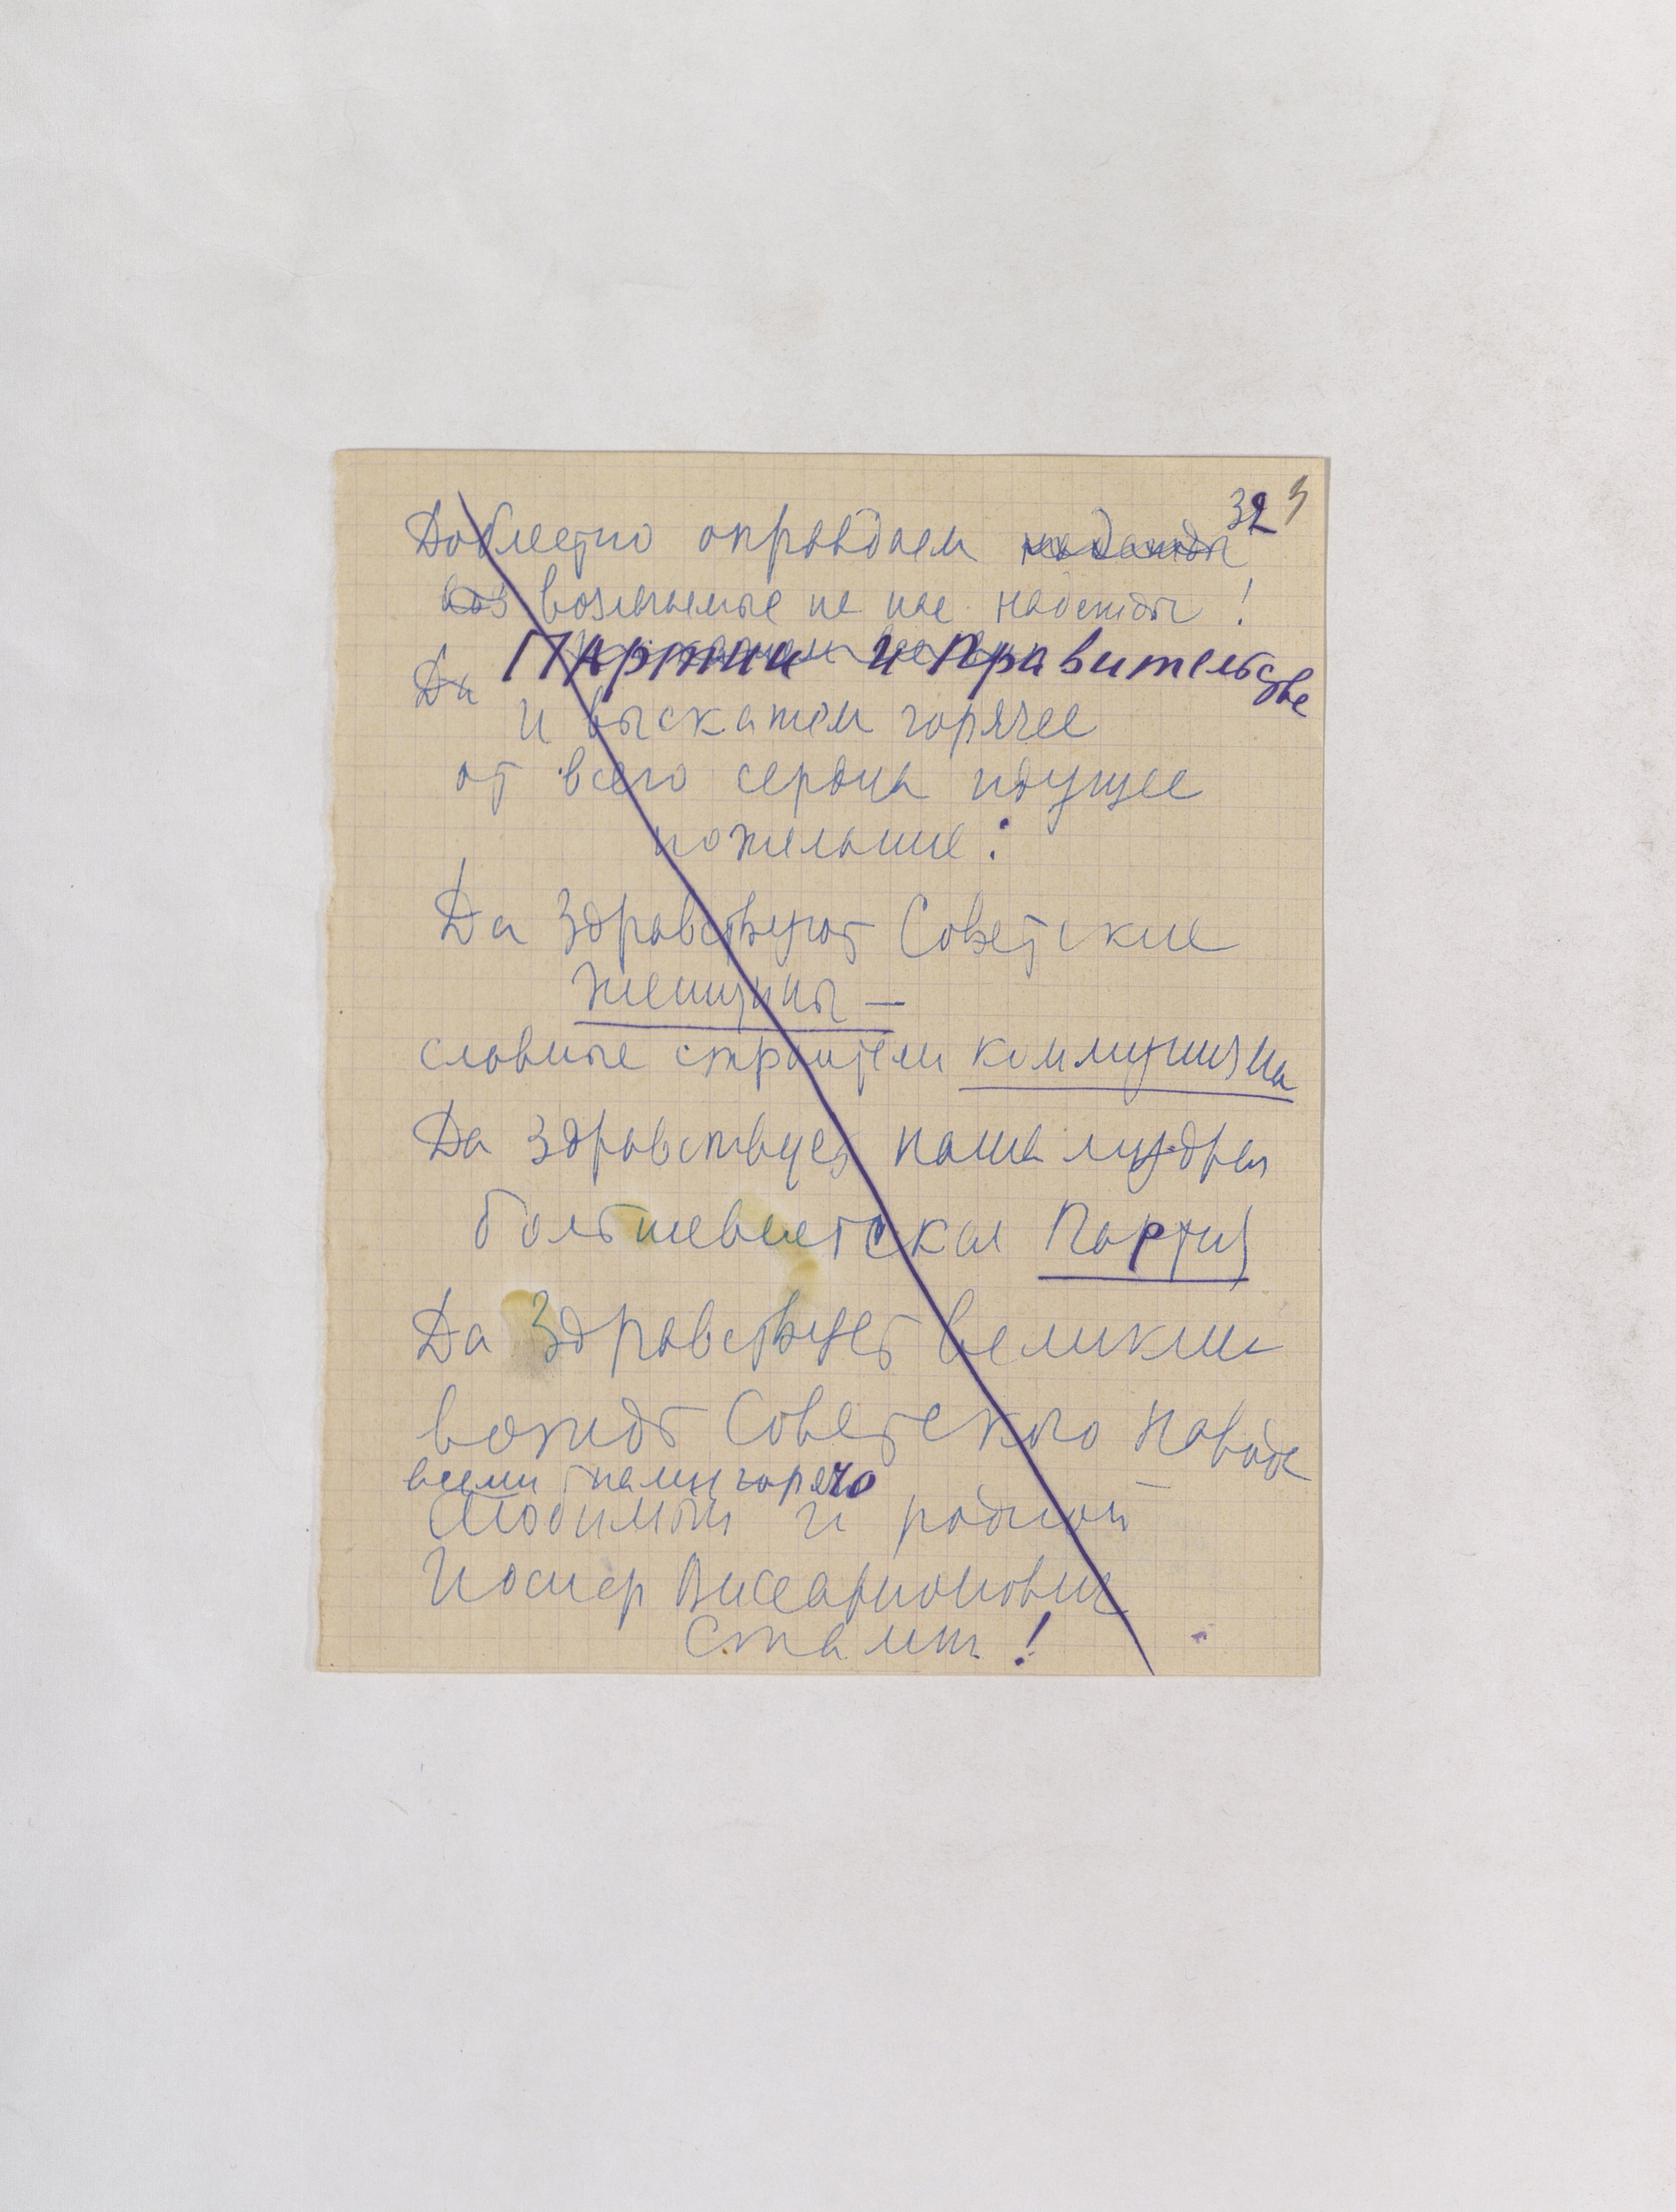 32 3
Доблестно оправдаем надежды
воз возлагаемые на нас надежды!
Партии и Правительства
Да
и выскажем горячее
от всего сердца идущее
пожелание:
Да здравствуют Советские
женщины —
славные строители коммунизма
Да здравствует наша мудрая
большевистская Партия
Да здравствует великий
вождь Советского народа
всеми нами горячо
любимый и родной
Иосиф Виссарионович
Сталин!